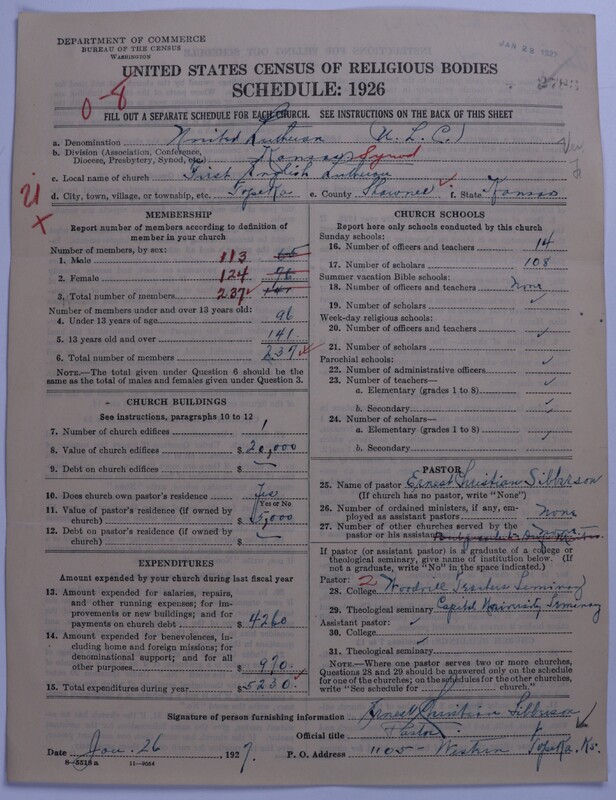 DEPARTMENT OF COMMERCE
BUREAU OF THE CENSUS
WASHINGTON
UNITED STATES CENSUS OF RELIGIOUS BODIES
SCHEDULE: 1926
0-8
FILL OUT A SEPARATE SCHEDULE FOR EACH CHURCH. SEE INSTRUCTIONS ON THE BACK OF THIS SHEET
a. Denomination United Lutheran (U. L. C.)
b. Division (Association, Conference, Diocese, Presbytery, Synod, etc.) Kansas Synod
c. Local name of church First English Lutheran
d. City, town, village, or township, etc. Topeka e. County Shawnee f. State Kansas
MEMBERSHIP
Report number of members according to definition of member in your church
Number of members, by sex:
1. Male 113 65
2. Female 124 76
3. Total number of members 237 141
Number of members under and over 13 years old:
4. Under 13 years of age 96
5. 13 years old and over 141
6. Total number of members 237
NOTE.—The total given under Question 6 should be the same as the total of males and females given under Question 3.
CHURCH BUILDINGS
See instructions, paragraphs 10 to 12
7. Number of church edifices 1
8. Value of church edifices $ 20,000
9. Debt on church edifices $ —
10. Does church own pastor's residence Yes
Yes or No
11. Value of pastor's residence (if owned by church) $ 5,000
12. Debt on pastor's residence (if owned by church) $ —
EXPENDITURES
Amount expended by your church during last fiscal year
13. Amount expended for salaries, repairs, and other running expenses; for improvements or new buildings; and for payments on church debt $ 4260
14. Amount expended for benevolences, including home and foreign missions; for denominational support; and for all other purposes $ 970.
15. Total expenditures during year $ 5230.
CHURCH SCHOOLS
Report here only schools conducted by this church
Sunday schools:
16. Number of officers and teachers 14
17. Number of scholars 108
Summer vacation Bible schools:
18. Number of officers and teachers None
19. Number of scholars
Week-day religious schools:
20. Number of officers and teachers
21. Number of scholars
Parochial schools:
22. Number of administrative officers
23. Number of teachers—
a. Elementary (grades 1 to 8)
b. Secondary
24. Number of scholars—
a. Elementary (grades 1 to 8)
b. Secondary
PASTOR
25. Name of pastor Ernest Christian Sibberson
(If church has no pastor, write "None")
26. Number of ordained ministers, if any, employed as assistant pastors None
27. Number of other churches served by the pastor or his assistant None
If pastor (or assistant pastor) is a graduate of a college or theological seminary, give name of institution below. (If not a graduate, write "No" in the space indicated.)
Pastor: 2
28. College Woodville Teachers Seminary
29. Theological seminary Capitol University Seminary
Assistant pastor:
30. College
31. Theological seminary
NOTE.—Where one pastor serves two or more churches, Questions 28 and 29 should be answered only on the schedule for one of the churches; on the schedules for the other churches, write "See schedule for church."
Signature of person furnishing information Ernest Christian Sibberson
Official title Pastor
Date Jan. 26, 1927. P. O. Address 1105 - Western Topeka. Ks.
8-5518a 11-9054